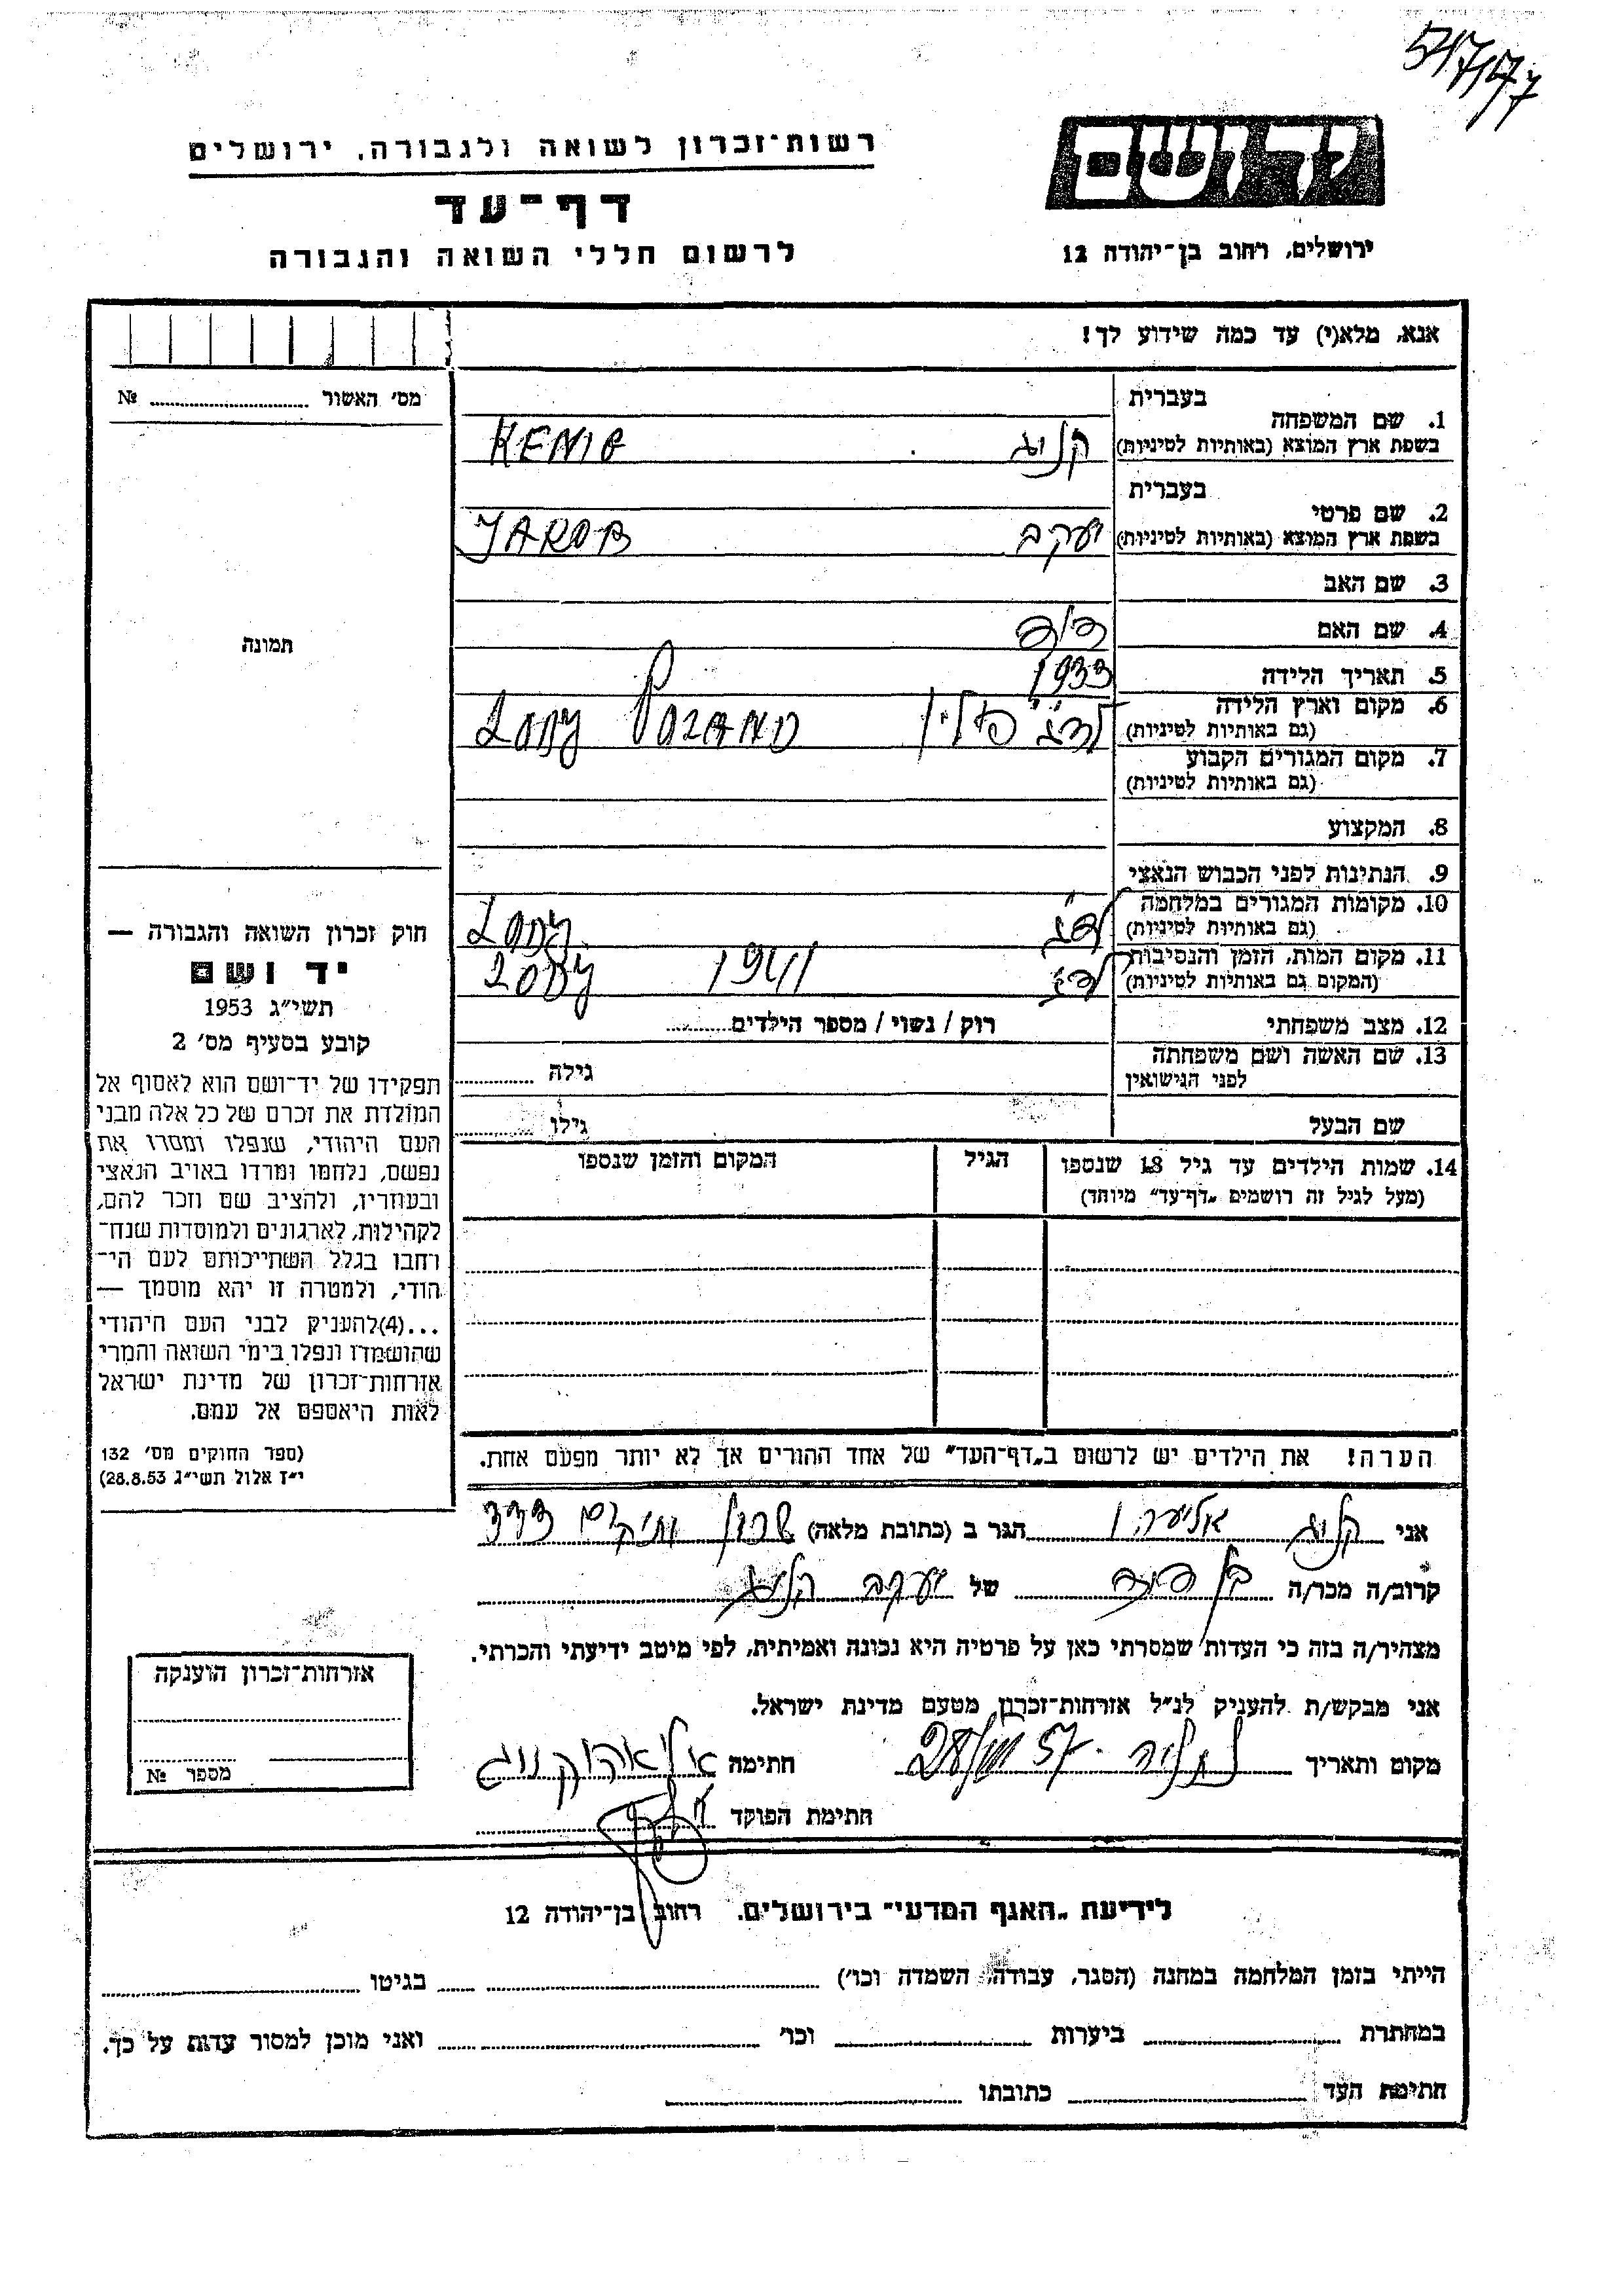 54/747
רשות־זכרון לשואה ולגבורה, ירושלים
יד ושם
דף־עד
לרשום חללי השואה והגבורה
ירושלים, רחוב בן־יהודה 12
אנא, מלא(י) עד כמה שידוע לך!
מס׳ האשור № 
בעברית
1. שם המשפחה
בשפת ארץ המוצא (באותיות לטיניות)
קניג KENIG
בעברית
2. שם פרטי
בשפת ארץ המוצא (באותיות לטיניות)
יעקב JAKOB
3. שם האב
4. שם האם
תמונה
5. תאריך הלידה 1933
6. מקום וארץ הלידה
(גם באותיות לטיניות)
לודג׳ פולין LODZ POLAND
7. מקום המגורים הקבוע
(גם באותיות לטיניות)
8. המקצוע
9. הנתינות לפני הכבוש הנאצי
10. מקומות המגורים במלחמה
(גם באותיות לטיניות)
לודג׳ LODZ
11. מקום המות, הזמן והנסיבות
(המקום גם באותיות לטיניות)
לודג׳ 1941 LODZ
12. מצב משפחתי רוק / נשוי / מספר הילדים
13. שם האשה ושם משפחתה
לפני הנישואין
גילה
שם הבעל גילו
14. שמות הילדים עד גיל 18 שנספו
(מעל לגיל זה רושמים „דף־עד״ מיוחד)
הגיל
המקום והזמן שנספו
חוק זכרון השואה והגבורה —
יד ושם
תשי״ג 1953
קובע בסעיף מס׳ 2
תפקידו של יד־ושם הוא לאסוף אל
המולדת את זכרם של כל אלה מבני
העם היהודי, שנפלו ומסרו את
נפשם, נלחמו ומרדו באויב הנאצי
ובעוזריו, ולהציב שם וזכר להם,
לקהילות, לארגונים ולמוסדות שנח־
רחבו בגלל השתייכותם לעם הי־
הודי, ולמטרה זו יהא מוסמך —
...(4)להעניק לבני העם היהודי
שהושמדו ונפלו בימי השואה והמרי
אזרחות־זכרון של מדינת ישראל
לאות היאספם אל עמם.
(ספר החוקים מס׳ 132
י״ז אלול תשי״ג 28.8.53)
הערה! את הילדים יש לרשום ב„דף־העד״ של אחד ההורים אך לא יותר מפעם אחת.
אני קניג הגר ב (כתובת מלאה)
קרוב/ה מכר/ה בן דוד של יעקב קניג
מצהיר/ה בזה כי העדות שמסרתי כאן על פרטיה היא נכונה ואמיתית, לפי מיטב ידיעתי והכרתי.
אני מבקש/ת להעניק לנ״ל אזרחות־זכרון מטעם מדינת ישראל.
מקום ותאריך נתניה חתימה אליהו קניג
חתימת הפוקד
אזרחות־זכרון הוענקה
מספר №
לידיעת „האגף המדעי״ בירושלים, רחוב בן־יהודה 12
הייתי בזמן המלחמה במחנה (הסגר, עבודה, השמדה וכו׳) בגיטו
במחתרת ביערות וכו׳ ואני מוכן למסור עדות על כך.
חתימת העד כתובתו